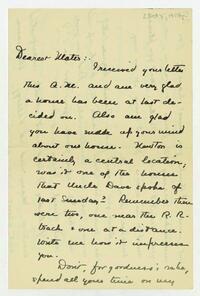 Dearest Mater:-
I received your letter
this A.M. and am very glad
a house has been at last de-
cided on. Also am glad
you have made up your mind
about our house. Newton is
certainly a central location;
was it one of the houses
that Uncle Dave spoke of
last Sunday? Remember there
were two, one near the R.R.
track & one at a distance.
Write me how it impresses
you.
Don't, for goodness's sake,
spend all your time on my